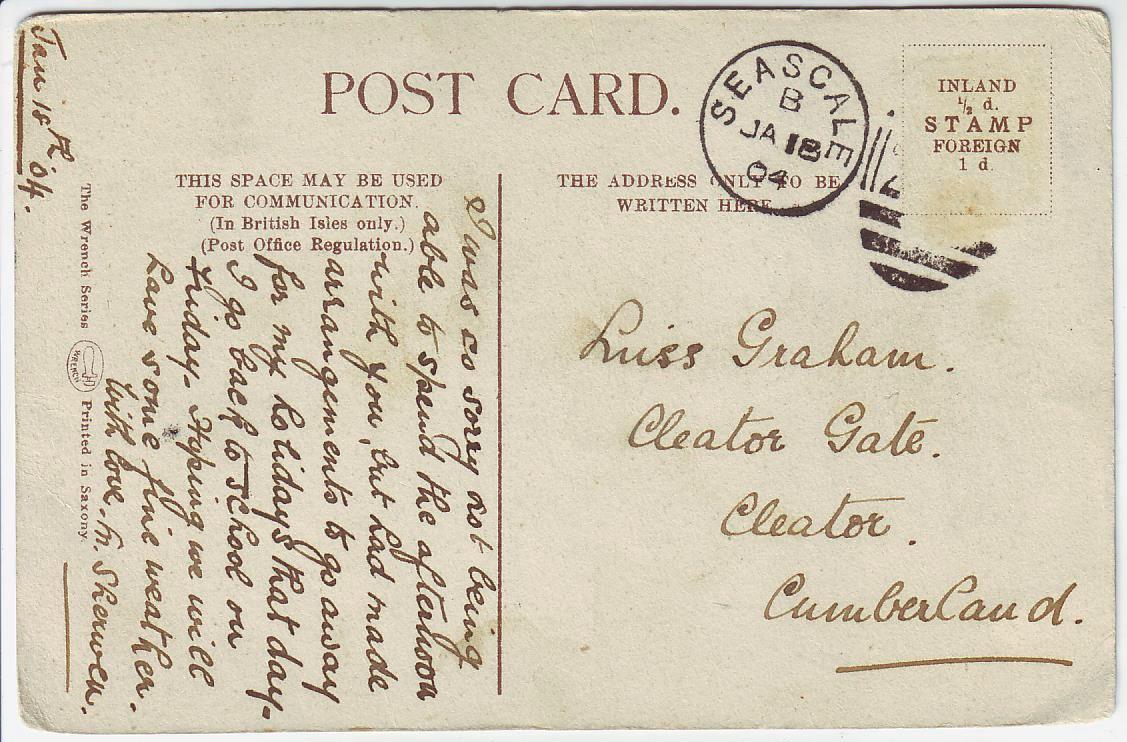 POST CARD.
SEASCALE
B
JA 18
04
INLAND
½ d.
STAMP
FOREIGN
1 d.
THIS SPACE MAY BE USED
FOR COMMUNICATION.
(In British Isles only.)
(Post Office Regulation.)
THE ADDRESS ONLY TO BE
WRITTEN HERE.
Jan 18th '04.
I was so sorry not being
able to spend the afternoon
with you, but had made
arrangements to go away
for my holidays that day.
I go back to school on
Friday. Hoping we will
have some fine weather.
With love. M. Skerwen.
Miss Graham.
Cleator Gate.
Cleator.
Cumberland.
The Wrench Series
WRENCH
Printed in Saxony.